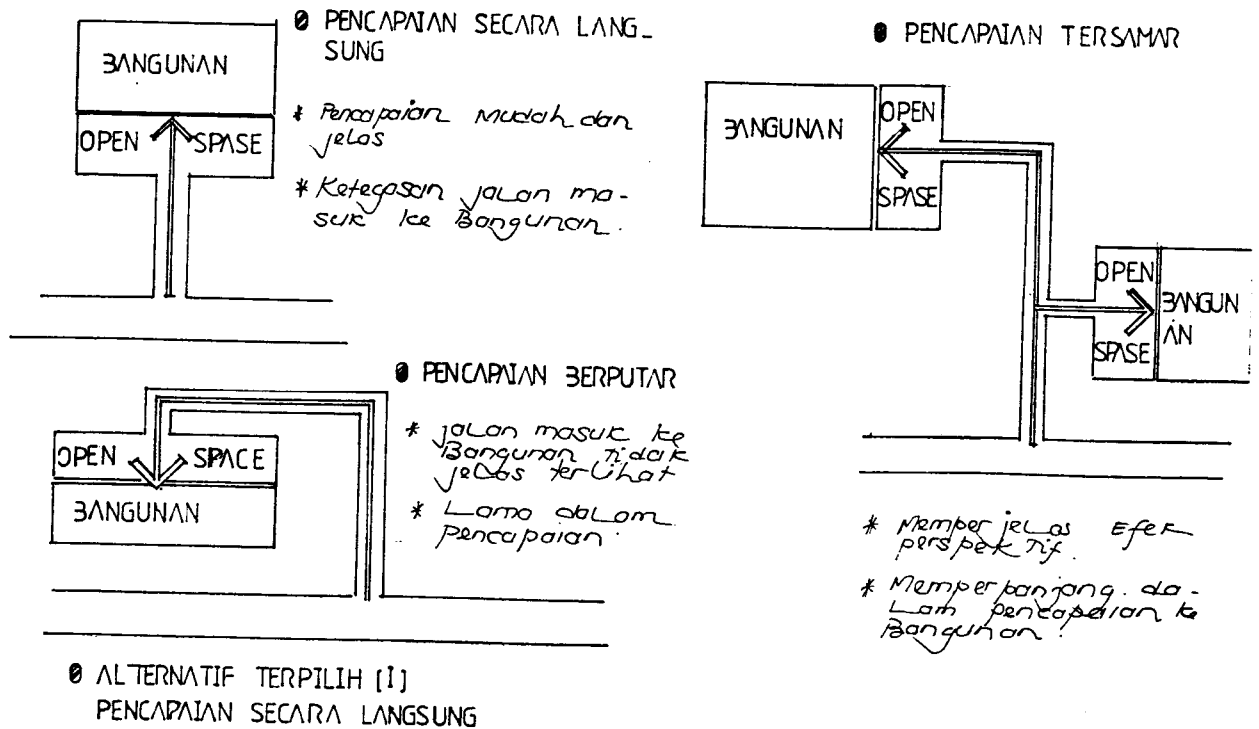 PENCAPAIAN SECARA LANG-
SUNG
BANGUNAN
OPEN SPASE
* Pencapaian Mudah dan
jelas
* Ketegasan jalan ma-
suk ke Bangunan.
PENCAPAIAN BERPUTAR
OPEN SPACE
BANGUNAN
* jalan masuk ke
Bangunan tidak
jelas terlihat
* Lama dalam
pencapaian.
ALTERNATIF TERPILIH [1]
PENCAPAIAN SECARA LANGSUNG
PENCAPAIAN TERSAMAR
BANGUNAN
OPEN
SPASE
OPEN
SPASE
BANGUN
AN
* Memperjelas Efek
perspektif.
* Memperpanjang da-
lam pencapaian ke
Bangunan.